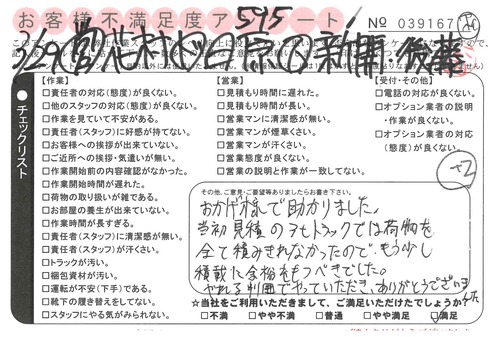 お客様不満足度アンケート
595
No 039167
チェックリスト
【作業】
□責任者の対応(態度)が良くない。
□他のスタッフの対応(態度)が良くない。
□作業を見ていて不安がある。
□責任者(スタッフ)に好感が持てない。
□お客様への挨拶が出来ていない。
□ご近所への挨拶・気遣いが無い。
□作業開始前の内容確認がなかった。
□作業開始時間が遅れた。
□荷物の取り扱いが雑である。
□お部屋の養生が出来ていない。
□作業時間が長すぎる。
□責任者(スタッフ)に清潔感が無い。
□責任者(スタッフ)が汗くさい。
□トラックが汚い。
□梱包資材が汚い。
□運転が不安(下手)である。
□靴下の履き替えをしてない。
□スタッフにやる気がみられない。
【営業】
□見積もり時間に遅れた。
□見積もり時間が長い。
□営業マンに清潔感が無い。
□営業マンが煙草くさい。
□営業マンが汗くさい。
□営業態度が良くない。
□営業の説明と作業が一致してない。
【受付・その他】
□電話の対応が良くない。
□オプション業者の説明
・作業が良くない。
□オプション業者の対応
(態度)が良くない。
+2
その他、ご意見・ご要望等ありましたらお書き下さい。
おかげ様で助かりました。
当初見積の2tトラックでは荷物を
全て積みきれなかったので、もう少し
積載に余裕をもつべきでした。
やれる判囲でやっていただき、ありがとうございました
☆当社をご利用いただきまして、ご満足いただけたでしょうか?
□不満 □やや不満 □普通 □やや満足 ☑満足